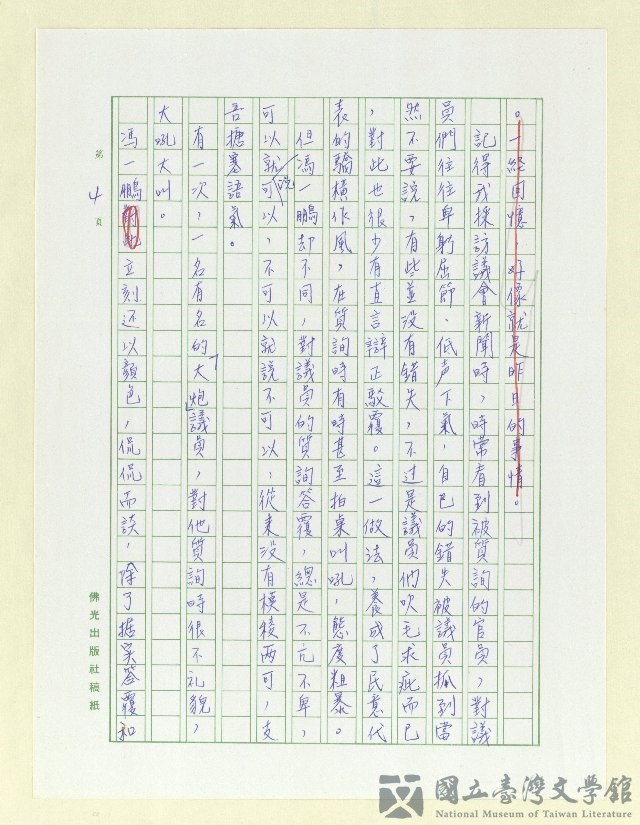 。一経回憶,好像就是昨日的事情。
記得我採訪議會新聞時,時常看到被質詢的官員,對議
員們往往卑躬屈節、低声下氣,自己的錯失被議員抓到當
然不要說,有些並没有錯失,不过是議員們吹毛求疵而已
,對此也很少有直言辯正駁覆。這一做法,養成了民意代
表的驕横作風,在質詢時有時甚至拍桌叫吼,態度粗暴。
但馮一鵬却不同,對議員的質詢答覆,總是不亢不卑,
可以就說可以,不可以就說不可以,從来没有模稜两可,支
吾搪塞語氣。
有一次,一名有名的「大炮」議員,對他質詢時很不礼貌,
大吼大叫。
馮一鵬對此立刻还以顏色,侃侃而談,除了据实答覆和
第 4 頁
佛光出版社稿紙
國立臺灣文學館
National Museum of Taiwan Literature